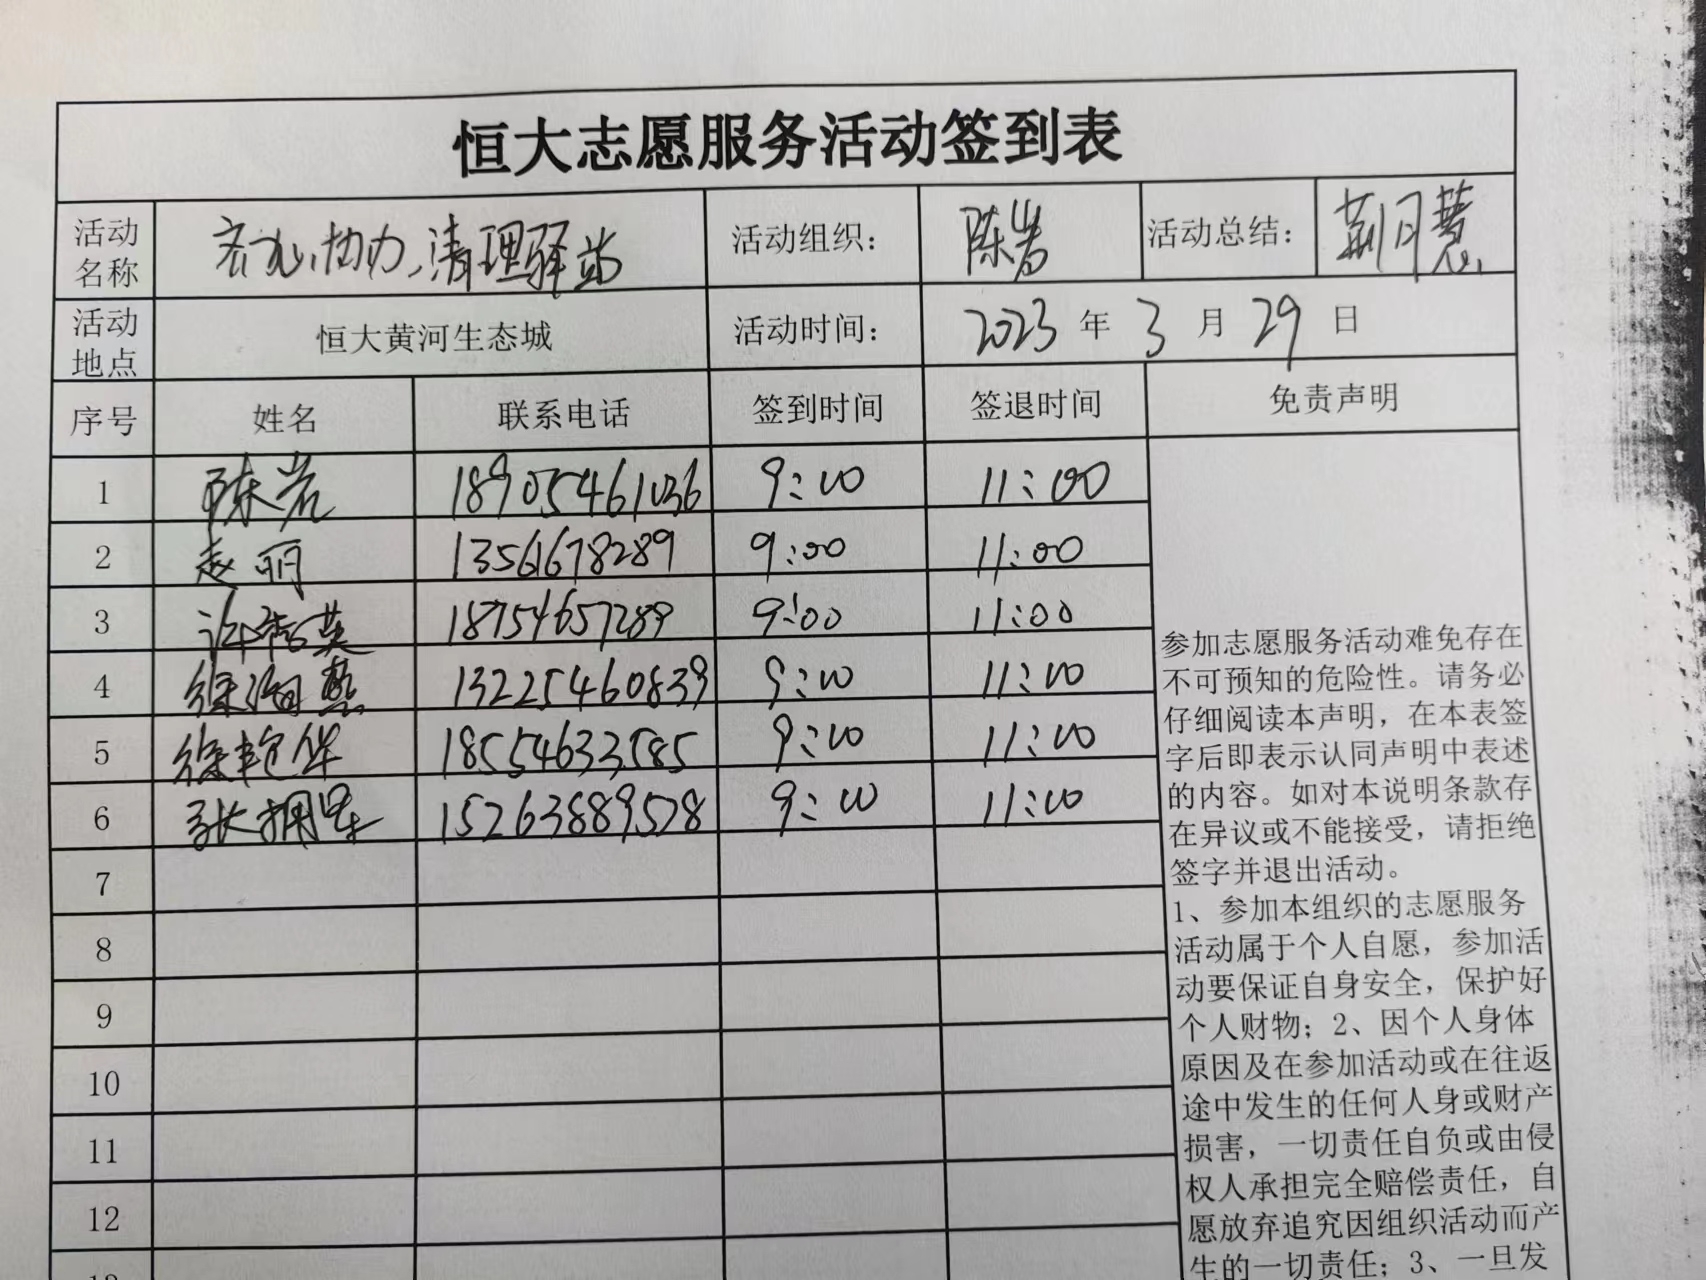 恒大志愿服务活动签到表
活动名称 齐心协力,清理驿站 活动组织: 陈岩 活动总结: 荆月慧
活动地点 恒大黄河生态城 活动时间: 2023 年 3 月 29 日
序号 姓名 联系电话 签到时间 签退时间 免责声明
1 陈岩 18905461036 9:00 11:00
2 赵丽 13561678289 9:00 11:00
3 18754657289 9:00 11:00
4 13225460839 9:00 11:00
5 徐艳华 18554633585 9:00 11:00
6 15263889578 9:00 11:00
7
8
9
10
11
12
13
参加志愿服务活动难免存在
不可预知的危险性。请务必
仔细阅读本声明，在本表签
字后即表示认同声明中表述
的内容。如对本说明条款存
在异议或不能接受，请拒绝
签字并退出活动。
1、参加本组织的志愿服务
活动属于个人自愿，参加活
动要保证自身安全，保护好
个人财物；2、因个人身体
原因及在参加活动或在往返
途中发生的任何人身或财产
损害，一切责任自负或由侵
权人承担完全赔偿责任，自
愿放弃追究因组织活动而产
生的一切责任；3、一旦发